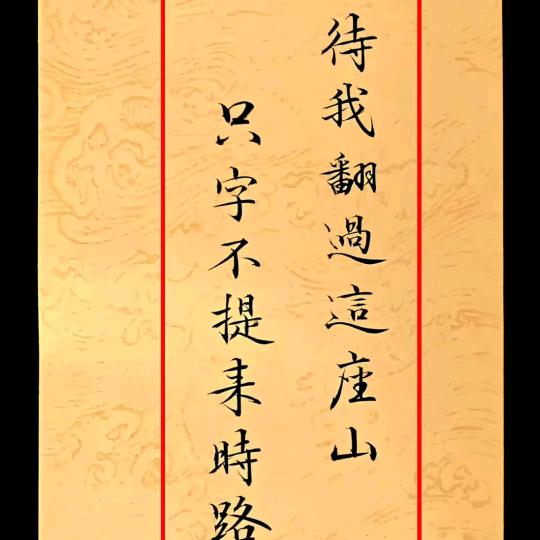 待我翻過這座山
只字不提来時路